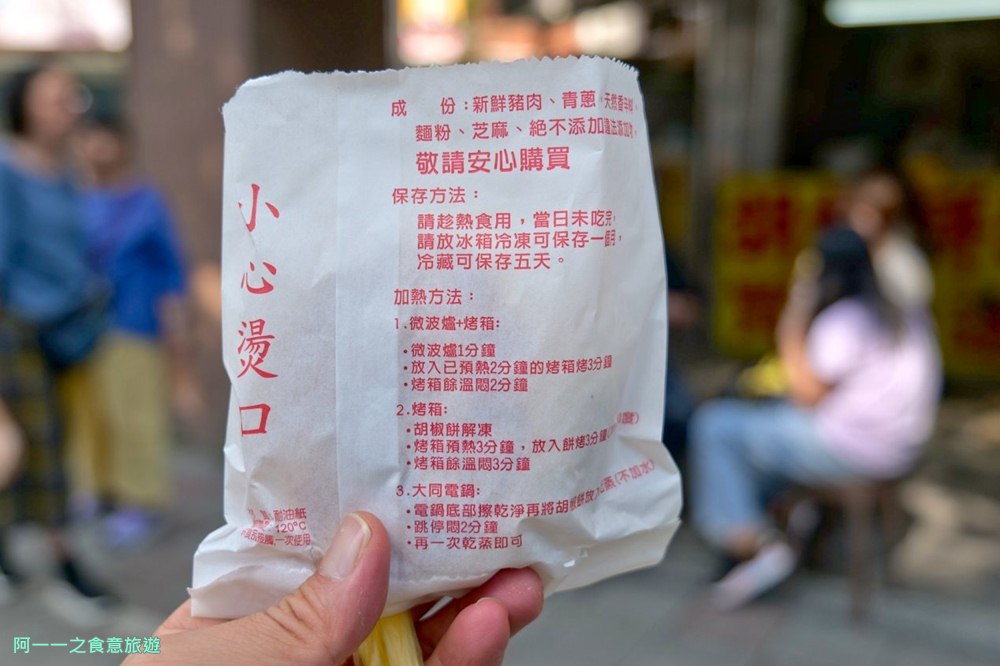 成 份：新鮮豬肉、青蔥、天然香辛料、
麵粉、芝麻、絕不添加違法添加物，
敬請安心購買
保存方法：
請趁熱食用，當日未吃完，
請放冰箱冷凍可保存一個月，
冷藏可保存五天。
加熱方法：
1.微波爐+烤箱:
·微波爐1分鐘
·放入已預熱2分鐘的烤箱烤3分鐘
·烤箱餘溫悶2分鐘
2.烤箱:
·胡椒餅解凍
·烤箱預熱3分鐘，放入餅烤3分鐘
·烤箱餘溫悶3分鐘
3.大同電鍋:
·電鍋底部擦乾淨再將胡椒餅放入乾蒸(不加水)
·跳停悶2分鐘
·再一次乾蒸即可
小心燙口
耐油紙
120°C
一次使用
阿一一之食意旅遊